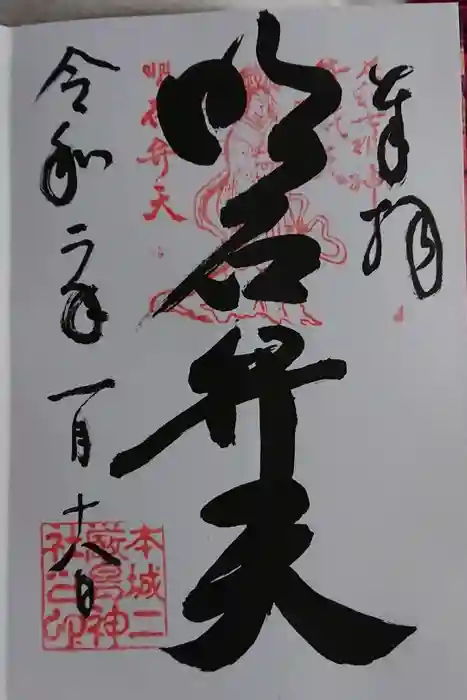 奉拝
明石弁天
令和二年一月十八日
明石弁天
本城二
厳島神
社之印